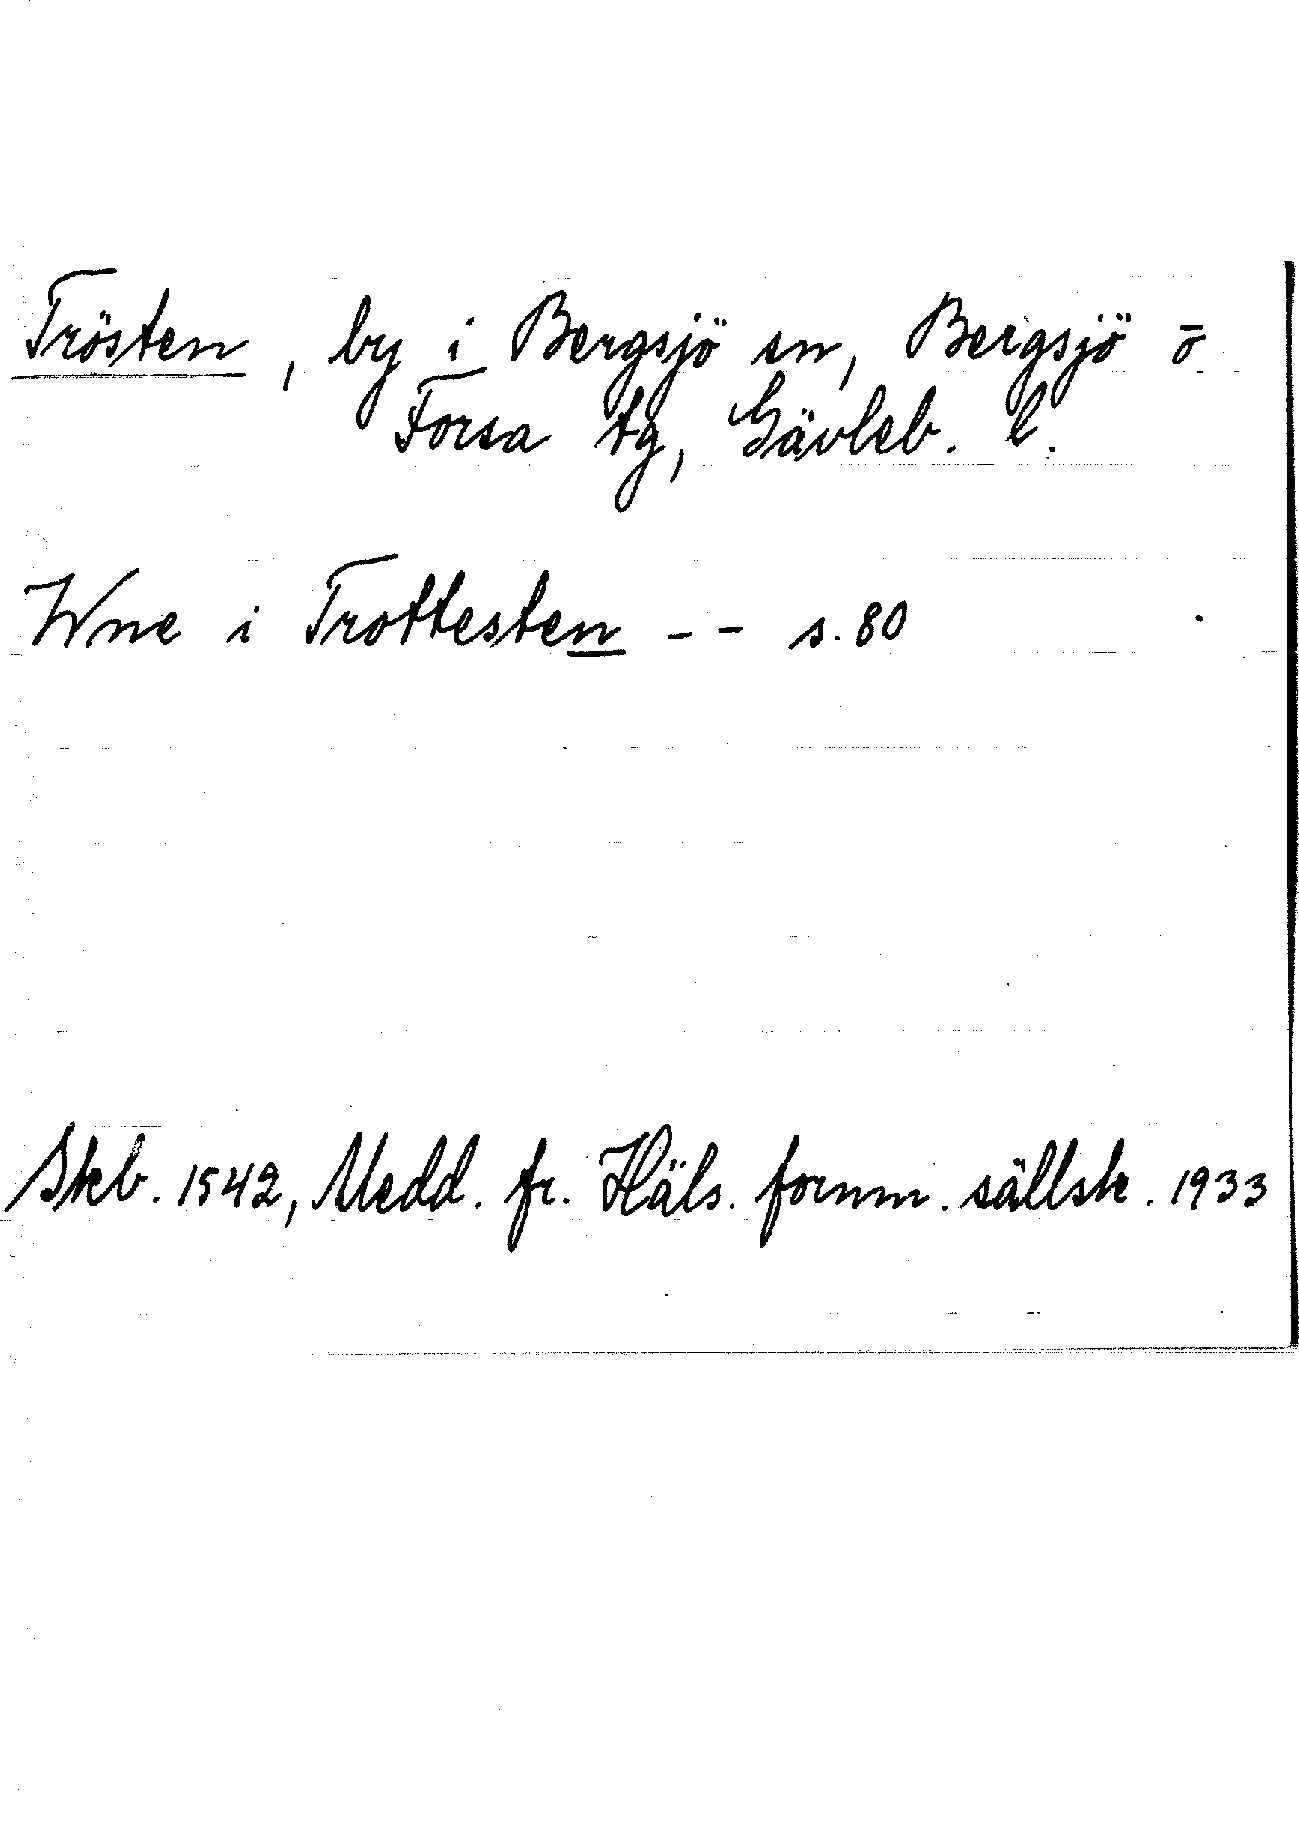 Trösten, by i Bergsjö sn, Bergsjö o
Forsa tg, Gävleb. l.
Wne i Trottesten -- s. 80
Skb. 1542, Medd. fr. Häls. fornm. sällsk. 1933